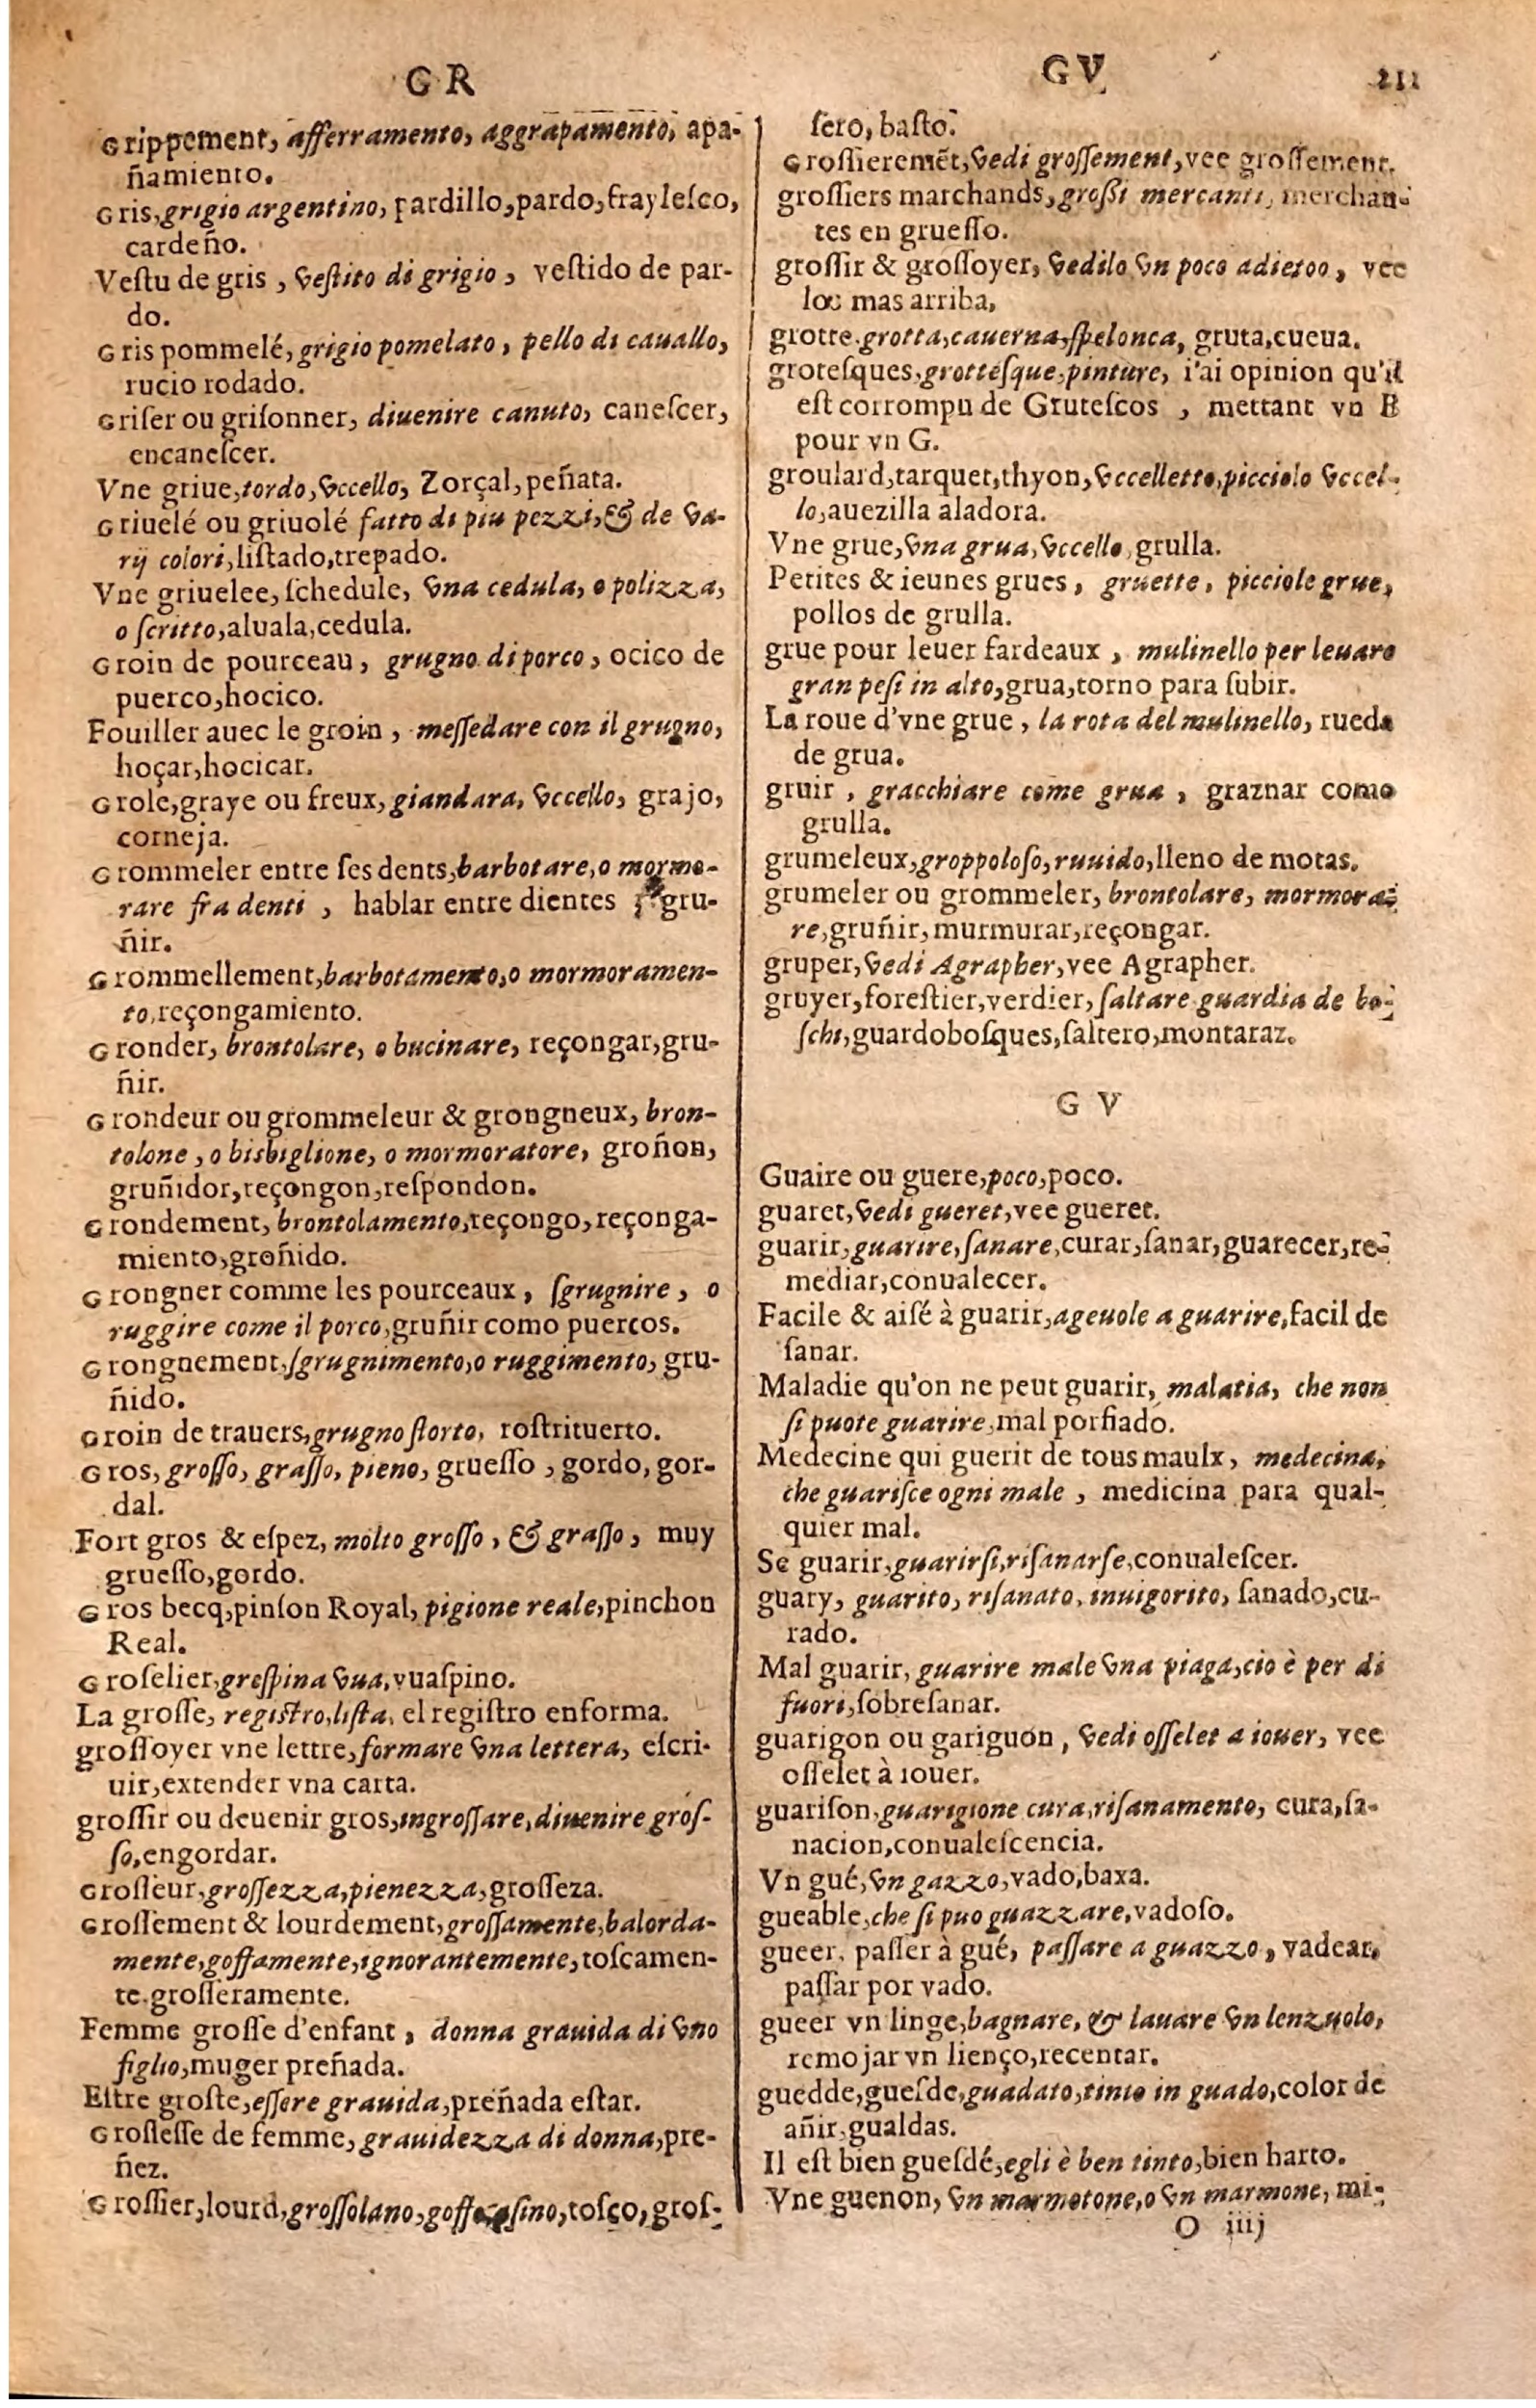 GR
Grippement, afferramento, aggrapamento, apa-
ñamiento.
Gris, grigio argentino, pardillo, pardo, frayleſco,
cardeño.
Veſtu de gris, veſtito di grigio, veſtido de par-
do.
Gris pommelé, grigio pomelato, pello di cauallo,
rucio rodado.
Griſer ou griſonner, diuenire canuto, caneſcer,
encaneſcer.
Vne griue, tordo, vccello, Zorçal, peñata.
Griuelé ou griuolé fatto di piu pezzi, & de va-
rij colori, liſtado, trepado.
Vne griuelee, ſchedule, vna cedula, o polizza,
o ſcritto, aluala, cedula.
Groin de pourceau, grugno di porco, ocico de
puerco, hocico.
Fouiller auec le groin, meſſedare con il grugno,
hoçar, hocicar.
Grole, graye ou freux, giandara, vccello, grajo,
corneja.
Grommeler entre ſes dents, barbotare, o mormo-
rare fra denti, hablar entre dientes, gru-
ñir.
Grommellement, barbotamento, o mormoramen-
to, reçongamiento.
Gronder, brontolare, o bucinare, reçongar, gru-
ñir.
Grondeur ou grommeleur & grongneux, bron-
tolone, o bisbiglione, o mormoratore, groñon,
gruñidor, reçongon, reſpondon.
Grondement, brontolamento, reçongo, reçonga-
miento, groñido.
Grongner comme les pourceaux, ſgrugnire, o
ruggire come il porco, gruñir como puercos.
Grongnement, ſgrugnimento, o ruggimento, gru-
ñido.
Groin de trauers, grugno ſtorto, roſtrituerto.
Gros, groſſo, graſſo, pieno, grueſſo, gordo, gor-
dal.
Fort gros & eſpez, molto groſſo, & graſſo, muy
grueſſo, gordo.
Gros becq, pinſon Royal, pigione reale, pinchon
Real.
Groſelier, greſpina vua, vuaſpino.
La groſſe, regiſtro, liſta, el regiſtro enforma.
groſſoyer vne lettre, formare vna lettera, eſcri-
uir, extender vna carta.
groſſir ou deuenir gros, ingroſſare, diuenire groſ-
ſo, engordar.
Groſſeur, groſſezza, pienezza, groſſeza.
Groſſement & lourdement, groſſamente, balorda-
mente, goffamente, ignorantemente, toſcamen-
te, groſſeramente.
Femme groſſe d'enfant, donna grauida di vno
figlio, muger preñada.
Eſtre groſſe, eſſere grauida, preñada eſtar.
Groſſeſſe de femme, grauidezza di donna, pre-
ñez.
Groſſier, lourd, groſſolano, goffo, aſino, toſço, groſ-
GV 211
ſero, baſto.
Groſſieremẽt, vedi groſſement, vee groſſement.
groſſiers marchands, groſſi mercanti, merchan-
tes en grueſſo.
groſſir & groſſoyer, vedilo vn poco adietoo, vee
loc mas arriba,
grotte, grotta, cauerna, ſpelonca, gruta, cueua.
groteſques, gretteſque, pinture, i'ai opinion qu'il
eſt corrompu de Gruteſcos, mettant vn B
pour vn G.
groulard, tarquet, thyon, vccelletto, picciolo vccel-
lo, auezilla aladora.
Vne grue, vna grua, vccello, grulla.
Petites & ieunes grues, gruette, picciole grue,
pollos de grulla.
grue pour leuer fardeaux, mulinello per leuare
gran peſi in alto, grua, torno para ſubir.
La roue d'vne grue, la rota del mulinello, rueda
de grua.
gruir, gracchiare come grua, graznar como
grulla.
grumeleux, groppoloſo, ruuido, lleno de motas.
grumeler ou grommeler, brontolare, mormora-
re, gruñir, murmurar, reçongar.
gruper, vedi Agrapher, vee Agrapher.
gruyer, foreſtier, verdier, ſaltare guardia de bo-
ſchi, guardoboſques, ſaltero, montaraz.
GV
Guaire ou guere, poco, poco.
guaret, vedi gueret, vee gueret.
guarir, guarire, ſanare, curar, ſanar, guarecer, re-
mediar, conualecer.
Facile & aiſé à guarir, ageuole a guarire, facil de
ſanar.
Maladie qu'on ne peut guarir, malatia, che non
ſi puote guarire, mal porfiado.
Medecine qui guerit de tous maulx, medecina,
che guariſce ogni male, medicina para qual-
quier mal.
Se guarir, guarirſi, riſanarſe, conualeſcer.
guary, guarito, riſanato, inuigorito, ſanado, cu-
rado.
Mal guarir, guarire male vna piaga, cio è per di
fuori, ſobreſanar.
guarigon ou gariguon, vedi oſſelet a iouer, vee
oſſelet à iouer.
guariſon, guarigione cura, riſanamento, cura, ſa-
nacion, conualeſcencia.
Vn gué, vn gazzo, vado, baxa.
gueable, che ſi puo guazzare, vadoſo.
gueer, paſſer à gué, paſſare a guazzo, vadear,
paſſar por vado.
gueer vn linge, bagnare, & lauare vn lenzuolo,
remojar vn lienço, recentar.
guedde, gueſde, guadato, tinto in guado, color de
añir, gualdas.
Il eſt bien gueſdé, egli è ben tinto, bien harto.
Vne guenon, vn marmotone, o vn marmone, mi-
O iiij